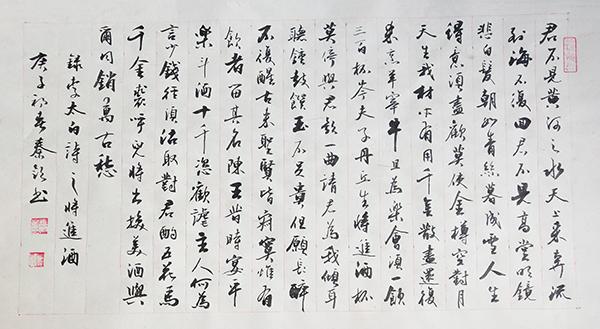 君不見黃河之水天上來奔流
到海不復回君不見高堂明鏡
悲白髮朝如青絲暮成雪人生
得意須盡歡莫使金樽空對月
天生我材必有用千金散盡還復
來烹羊宰牛且為樂會須一飲
三百杯岑夫子丹丘生將進酒杯
莫停與君歌一曲請君為我傾耳
聽鐘鼓饌玉不足貴但願長醉
不復醒古來聖賢皆寂寞惟有
飲者留其名陳王昔時宴平
樂斗酒十千恣歡謔主人何為
言少錢徑須沽取對君酌五花馬
千金裘呼兒將出換美酒與
爾同銷萬古愁
錄李太白詩之將進酒
庚子初秦書